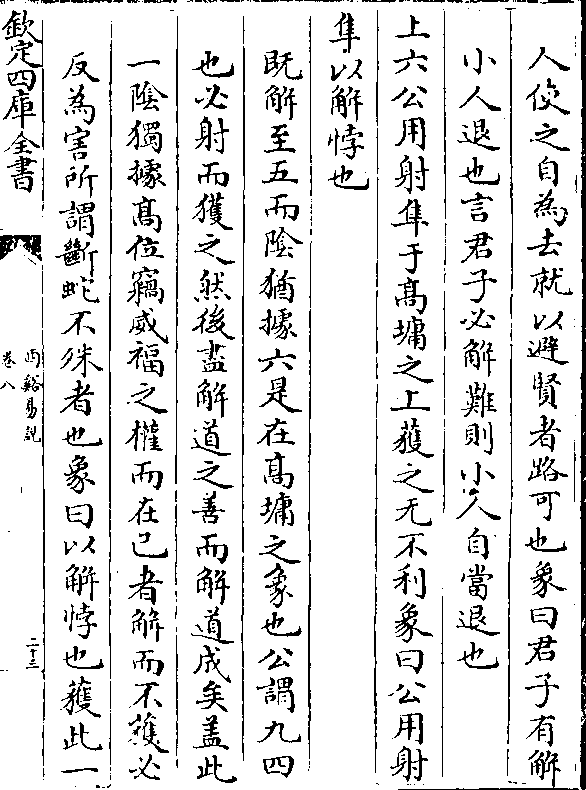 人使之自為去就以避賢者路可也象曰君子有解
小人退也言君子必解難則小人自當退也
上六公用射隼于髙墉之上獲之无不利象曰公用射
隼以解悖也
既解至五而陰猶據六是在髙墉之象也公謂九四
也必射而獲之然後盡解道之善而解道成矣盖此
一陰獨據髙位竊威福之權而在已者解而不獲必
反為害所謂斷蛇不殊者也象曰以解悖也獲此一
欽定四庫全書
西谿易說
卷八
二十三